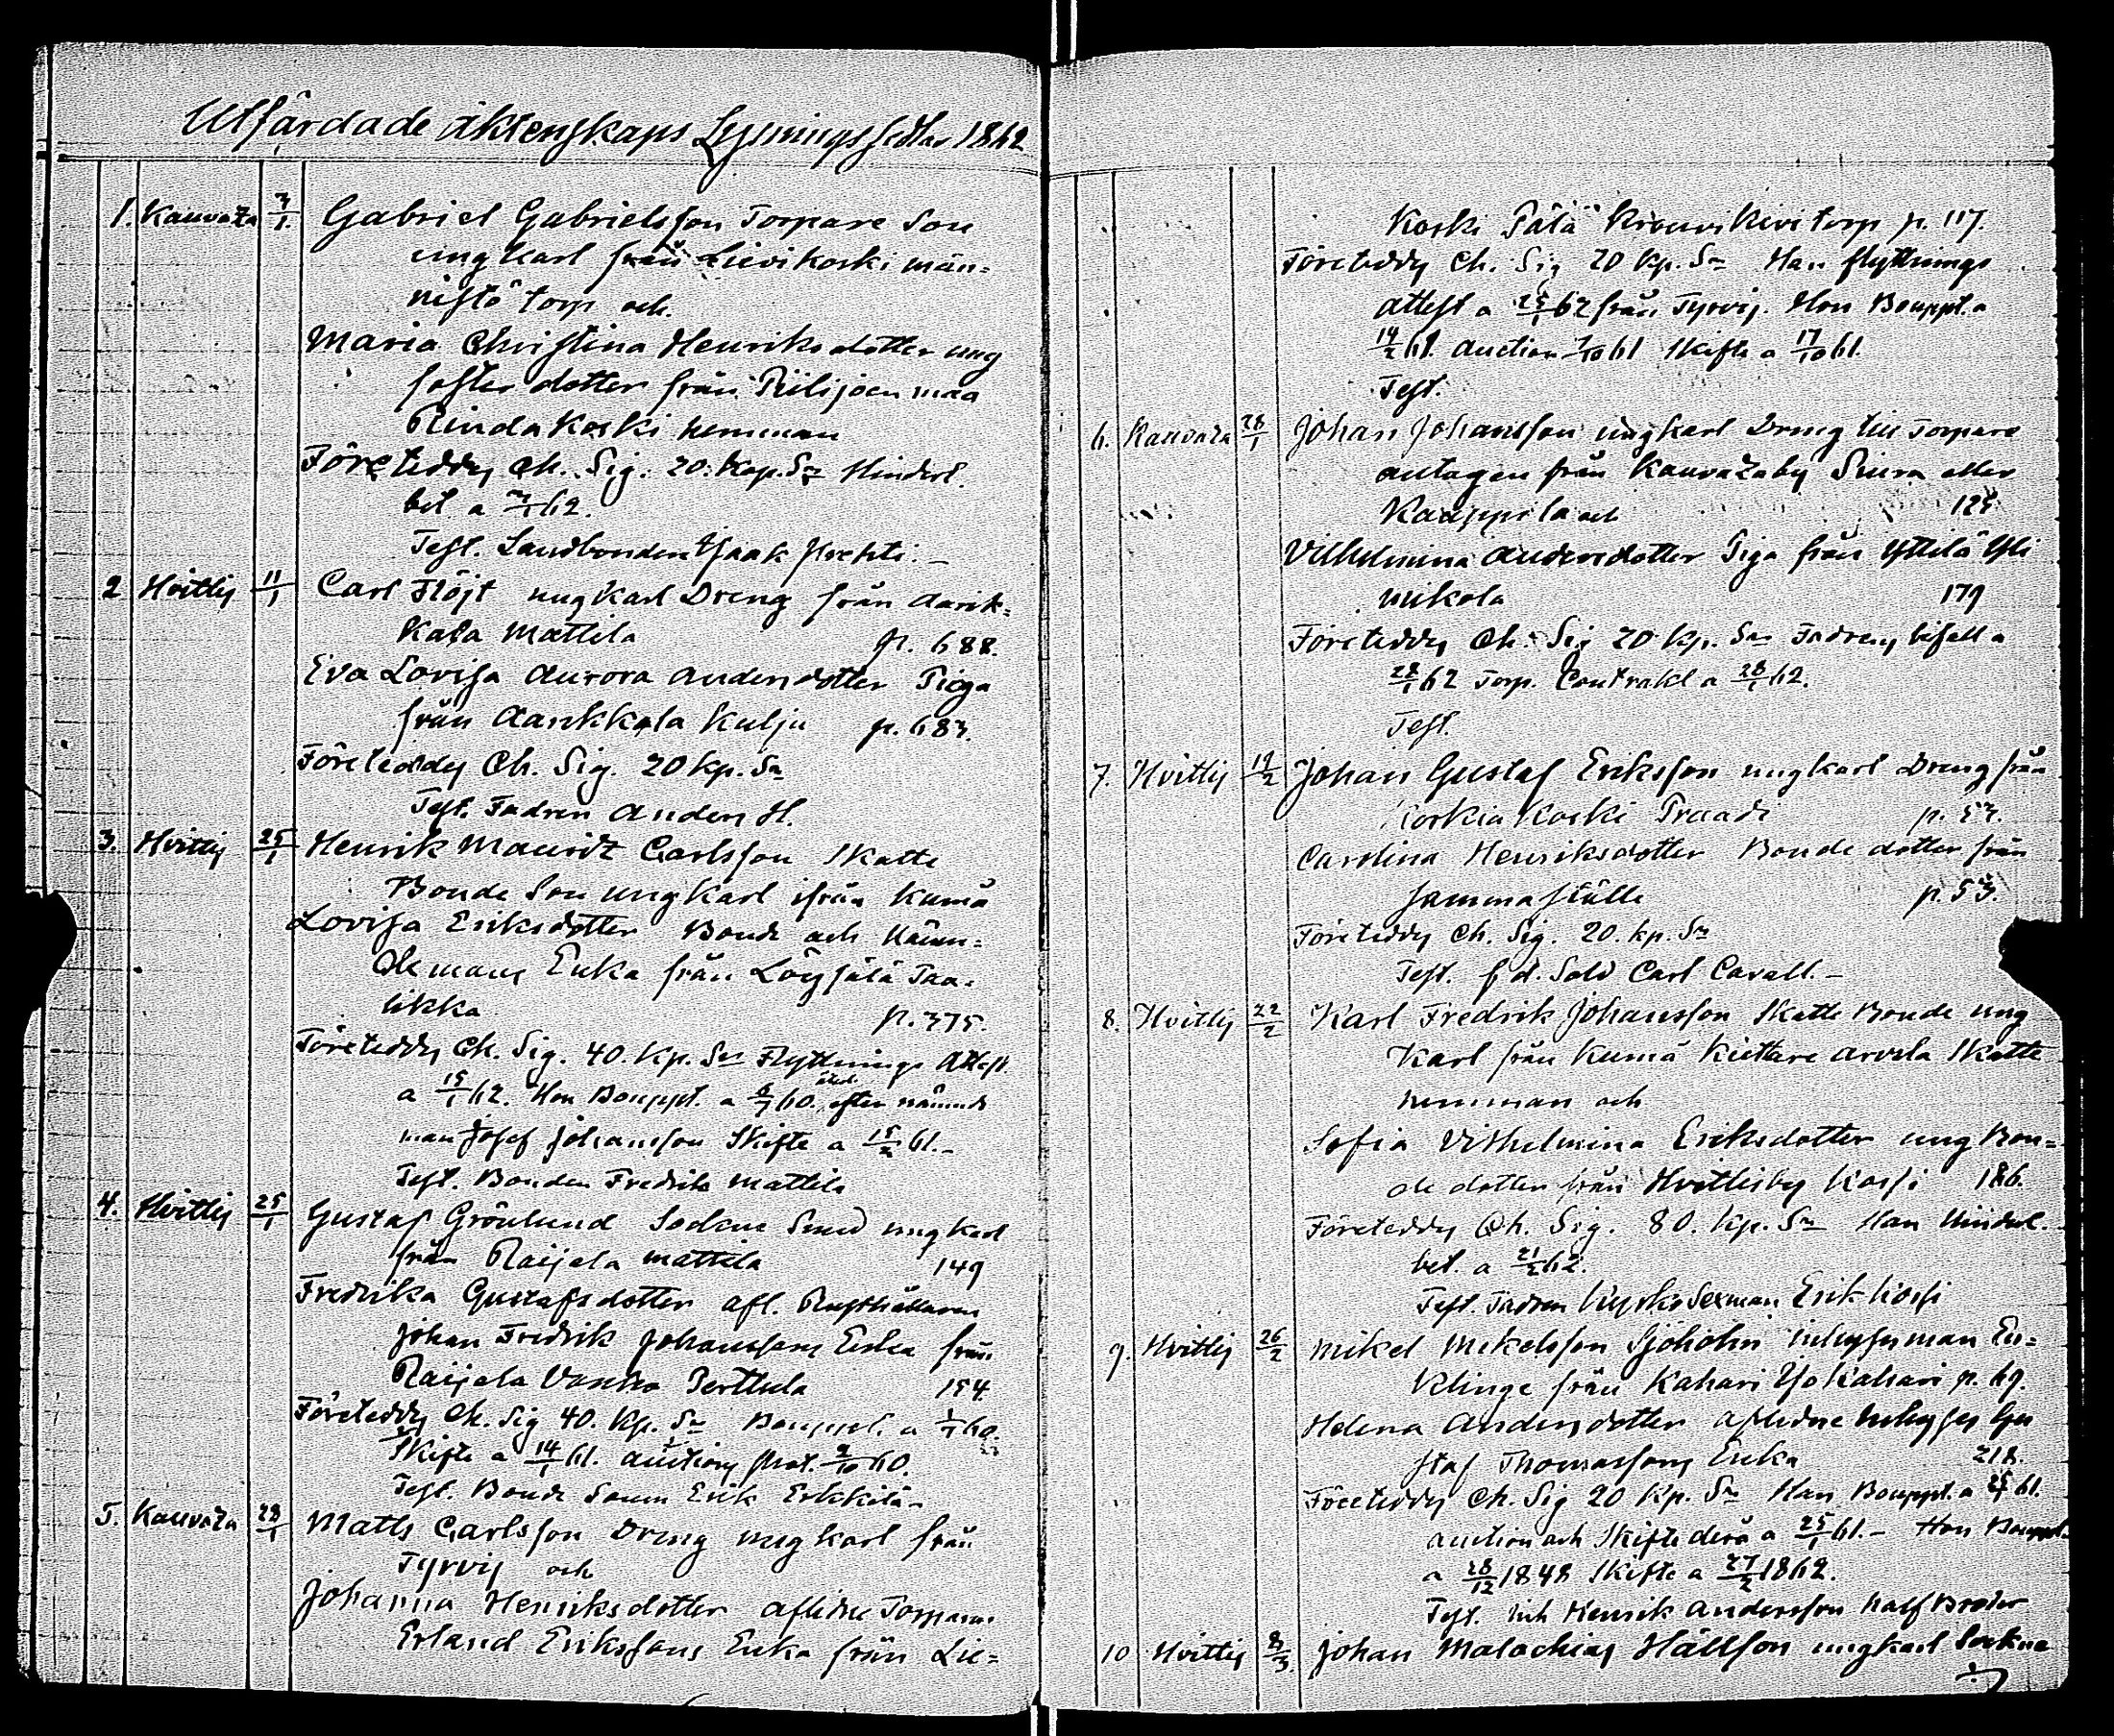 Utfärdade äktenskaps Lysningssedlar 1862
1. Kauvaza 3/1. Gabriel Gabrielsson Torpare Son
ungkarl från Lievikoski män=
nistö torp och
Maria Christina Henriksdotter ung
foster dotter från Piilijoenmaa
Rindakoski hemman
Företeddes Ch. Sig. 20. Kop. Sr Hinderl.
bet a 3/1 62.
Test. Landbonden Isaak
2 Hvittis 11/1 Carl Flöjt ungkarl Dreng från Aarik=
kala Mattila p. 688.
Eva Lovisa Aurora Andersdotter Piga
från Aarikkala Kulju p. 683.
Företeddes Ch. Sig. 20 Kp. Sr
Test. Fadren Anders H.
3. Hvittis 25/1 Henrik Mauritz Carlsson Skatte
Bonde Son ungkarl ifrån Kumå
Lovisa Eriksdotter Bonde och Näm=
demans Enka från Löysälä Taa=
likka p. 375.
Företeddes Ch. Sig. 40. Kp. Sr Flyttnings Attest
a 15/1 62. Hon Bouppt. a 6/7 60. efter nämnde
man Josef Johansson Skifte a 15/2 61.-
Test. Bonden Fredrik Mattila
4. Hvittis 25/1 Gustaf Grönlund Sockne Smed ungkarl
från Raijala Mattila 149
Fredrika Gustafsdotter afl. Rusthållaren
Johan Fredrik Johanssons Enka från
Raijala Vanha Perttula 154
Företeddes Ch. Sig 40. Kp. Sr Bouppt. a 60.
Skifte a 14/1 61. Auctions Prot. 2/10 60.
Test. Bonde Sonen Erik Erkkilä-
5. Kauvaza 28/1 Matts Carlsson Dreng ungkarl från
Tyrvis och
Johanna Henriksdotter aflidne Torparen
Erland Erikssons Enka från Lie=
Koski Pälä Krouvikivi torp p. 117.
Företeddes Ch. Sig 20 Kp. Sr Han flyttnings
attest a 25/1 62 från Tyrvis. Hon Bouppt. a
14/2 61. Auction 7/10 61 Skifte a 17/10 61.
Test.
6. Kauvaza 28/1 Johan Johansson ungkarl Dreng till Torpare
antagen från Kauvazaby Siura eller
Kauppila och 124
Vilhelmina Andersdotter Piga från Yttilä Yli
Mikola 179
Företeddes Ch. Sig 20 Kp. Sr Fadrens bifall a
28/1 62 Torp. Contrakt a 28/1 62.
Test.
7. Hvittis 19/2 Johan Gustaf Eriksson ungkarl Dreng från
Korkiakoski Praadi p. 53.
Carolina Henriksdotter Bonde dotter från
samma ställe p. 53.
Företeddes Ch. Sig. 20. kp. Sr
Test. f d. Sold Carl Cavall.-
8. Hvittis 22/2 Karl Fredrik Johansson Skatte Bonde ung
Karl från Kumå Kiettare Arvela Skatte
hemman och
Sofia Vilhelmina Eriksdotter ung Bon=
de dotter från Hvittisby Kossi 186.
Företeddes Ch. Sig. 80. Kp. Sr Han Hinderl.
bet. a 21/2 62.
Test. Fadren Kyrko Sexman Erik Kossi
9. Hvittis 26/2 Mikel Mikelsson Sjöholm inhysesman En=
klinge från Kahari Yokahari p. 69.
Helena Andersdotter aflidne Inhyses Gu
staf Thomassons Enka 218.
Företeddes Ch. Sig 20 Kp. Sr Han Bouppt. a 61.
auction och Skifte derå a 25/1 61.- Hon Bouppt.
a 28/12 1848 Skifte a 27/2 1862.
Test. Inh Henrik Andersson half Broder
10 Hvittis 8/3. Johan Malachias Hällfon ungkarl Sockne